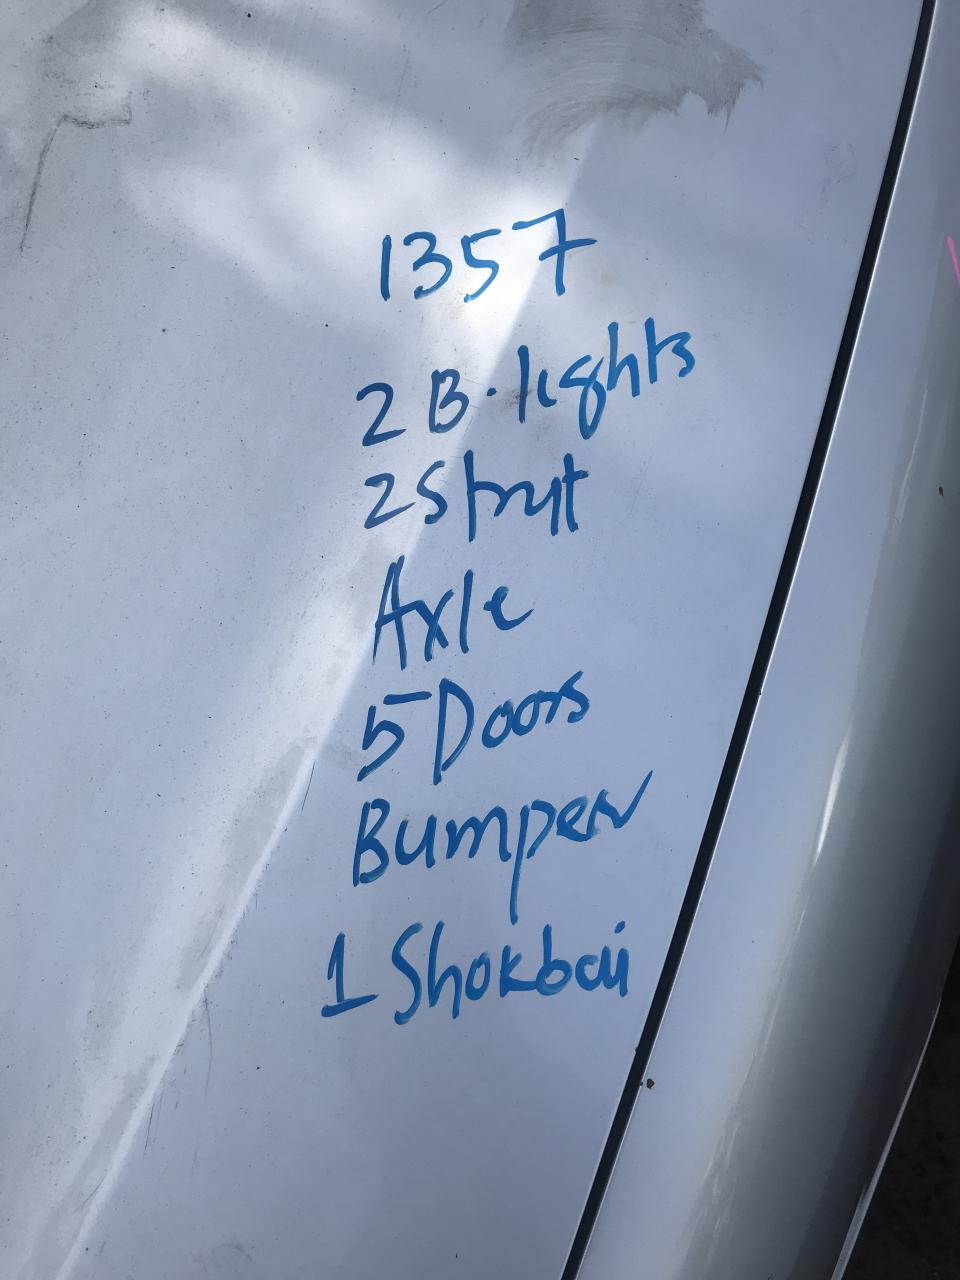 1357
2 B. lights
2 Strut
Axle
5 Doors
Bumper
1 Shokbaii